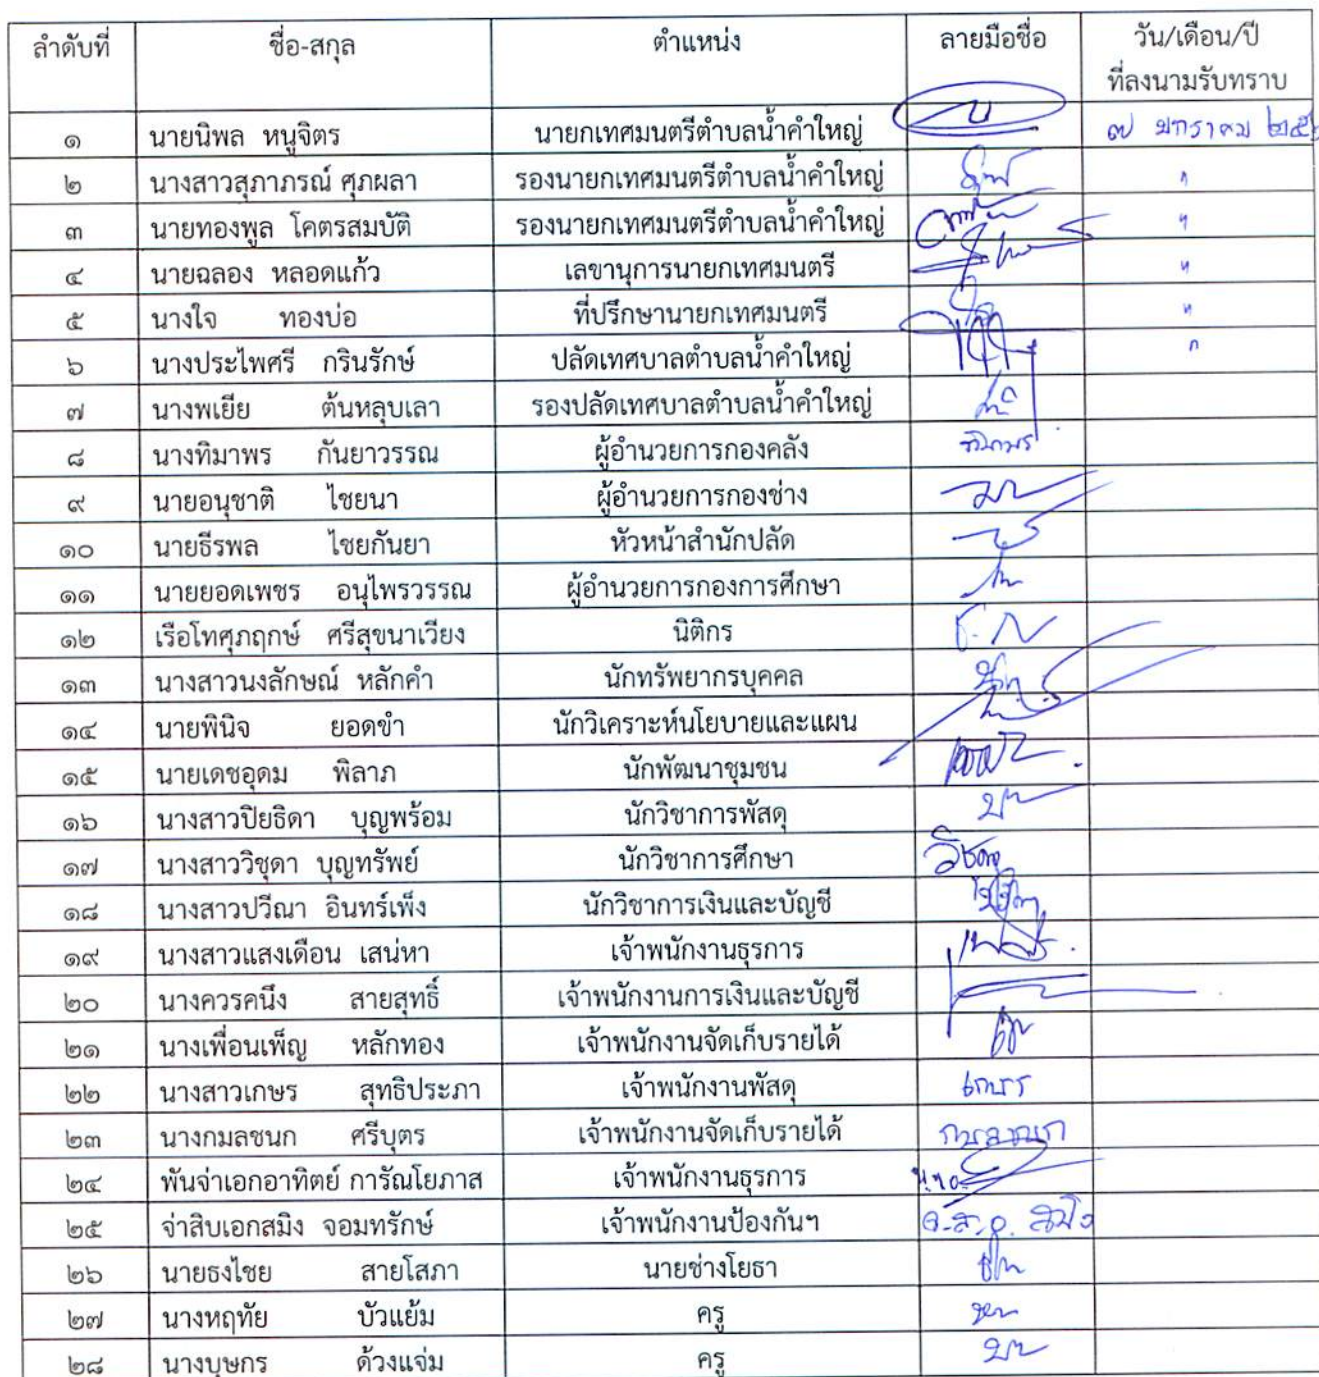 ลำดับที่ ชื่อ-สกุล ตำแหน่ง ลายมือชื่อ วัน/เดือน/ปี
ที่ลงนามรับทราบ
๑ นายนิพล หนูจิตร นายกเทศมนตรีตำบลน้ำคำใหญ่ ๗ มกราคม
๒ นางสาวสุภาภรณ์ ศุภผลา รองนายกเทศมนตรีตำบลน้ำคำใหญ่ "
๓ นายทองพูล โคตรสมบัติ รองนายกเทศมนตรีตำบลน้ำคำใหญ่ "
๔ นายฉลอง หลอดแก้ว เลขานุการนายกเทศมนตรี "
๕ นางใจ ทองบ่อ ที่ปรึกษานายกเทศมนตรี "
๖ นางประไพศรี กรินรักษ์ ปลัดเทศบาลตำบลน้ำคำใหญ่ "
๗ นางพเยีย ต้นหลุบเลา รองปลัดเทศบาลตำบลน้ำคำใหญ่
๘ นางทิมาพร กันยาวรรณ ผู้อำนวยการกองคลัง
๙ นายอนุชาติ ไชยนา ผู้อำนวยการกองช่าง
๑๐ นายธีรพล ไชยกันยา หัวหน้าสำนักปลัด
๑๑ นายยอดเพชร อนุไพรวรรณ ผู้อำนวยการกองการศึกษา
๑๒ เรือโทศุภฤกษ์ ศรีสุขนาเวียง นิติกร
๑๓ นางสาวนงลักษณ์ หลักคำ นักทรัพยากรบุคคล
๑๔ นายพินิจ ยอดขำ นักวิเคราะห์นโยบายและแผน
๑๕ นายเดชอุดม พิลาภ นักพัฒนาชุมชน
๑๖ นางสาวปิยธิดา บุญพร้อม นักวิชาการพัสดุ
๑๗ นางสาววิชุดา บุญทรัพย์ นักวิชาการศึกษา
๑๘ นางสาวปวีณา อินทร์เพ็ง นักวิชาการเงินและบัญชี
๑๙ นางสาวแสงเดือน เสน่หา เจ้าพนักงานธุรการ
๒๐ นางควรคนึง สายสุทธิ์ เจ้าพนักงานการเงินและบัญชี
๒๑ นางเพื่อนเพ็ญ หลักทอง เจ้าพนักงานจัดเก็บรายได้
๒๒ นางสาวเกษร สุทธิประภา เจ้าพนักงานพัสดุ เกษร
๒๓ นางกมลชนก ศรีบุตร เจ้าพนักงานจัดเก็บรายได้ กมลชนก
๒๔ พันจ่าเอกอาทิตย์ การัณโยภาส เจ้าพนักงานธุรการ
๒๕ จ่าสิบเอกสมิง จอมทรักษ์ เจ้าพนักงานป้องกันฯ จ.ส.อ. สมิง
๒๖ นายธงไชย สายโสภา นายช่างโยธา
๒๗ นางหฤทัย บัวแย้ม ครู
๒๘ นางบุษกร ด้วงแจ่ม ครู